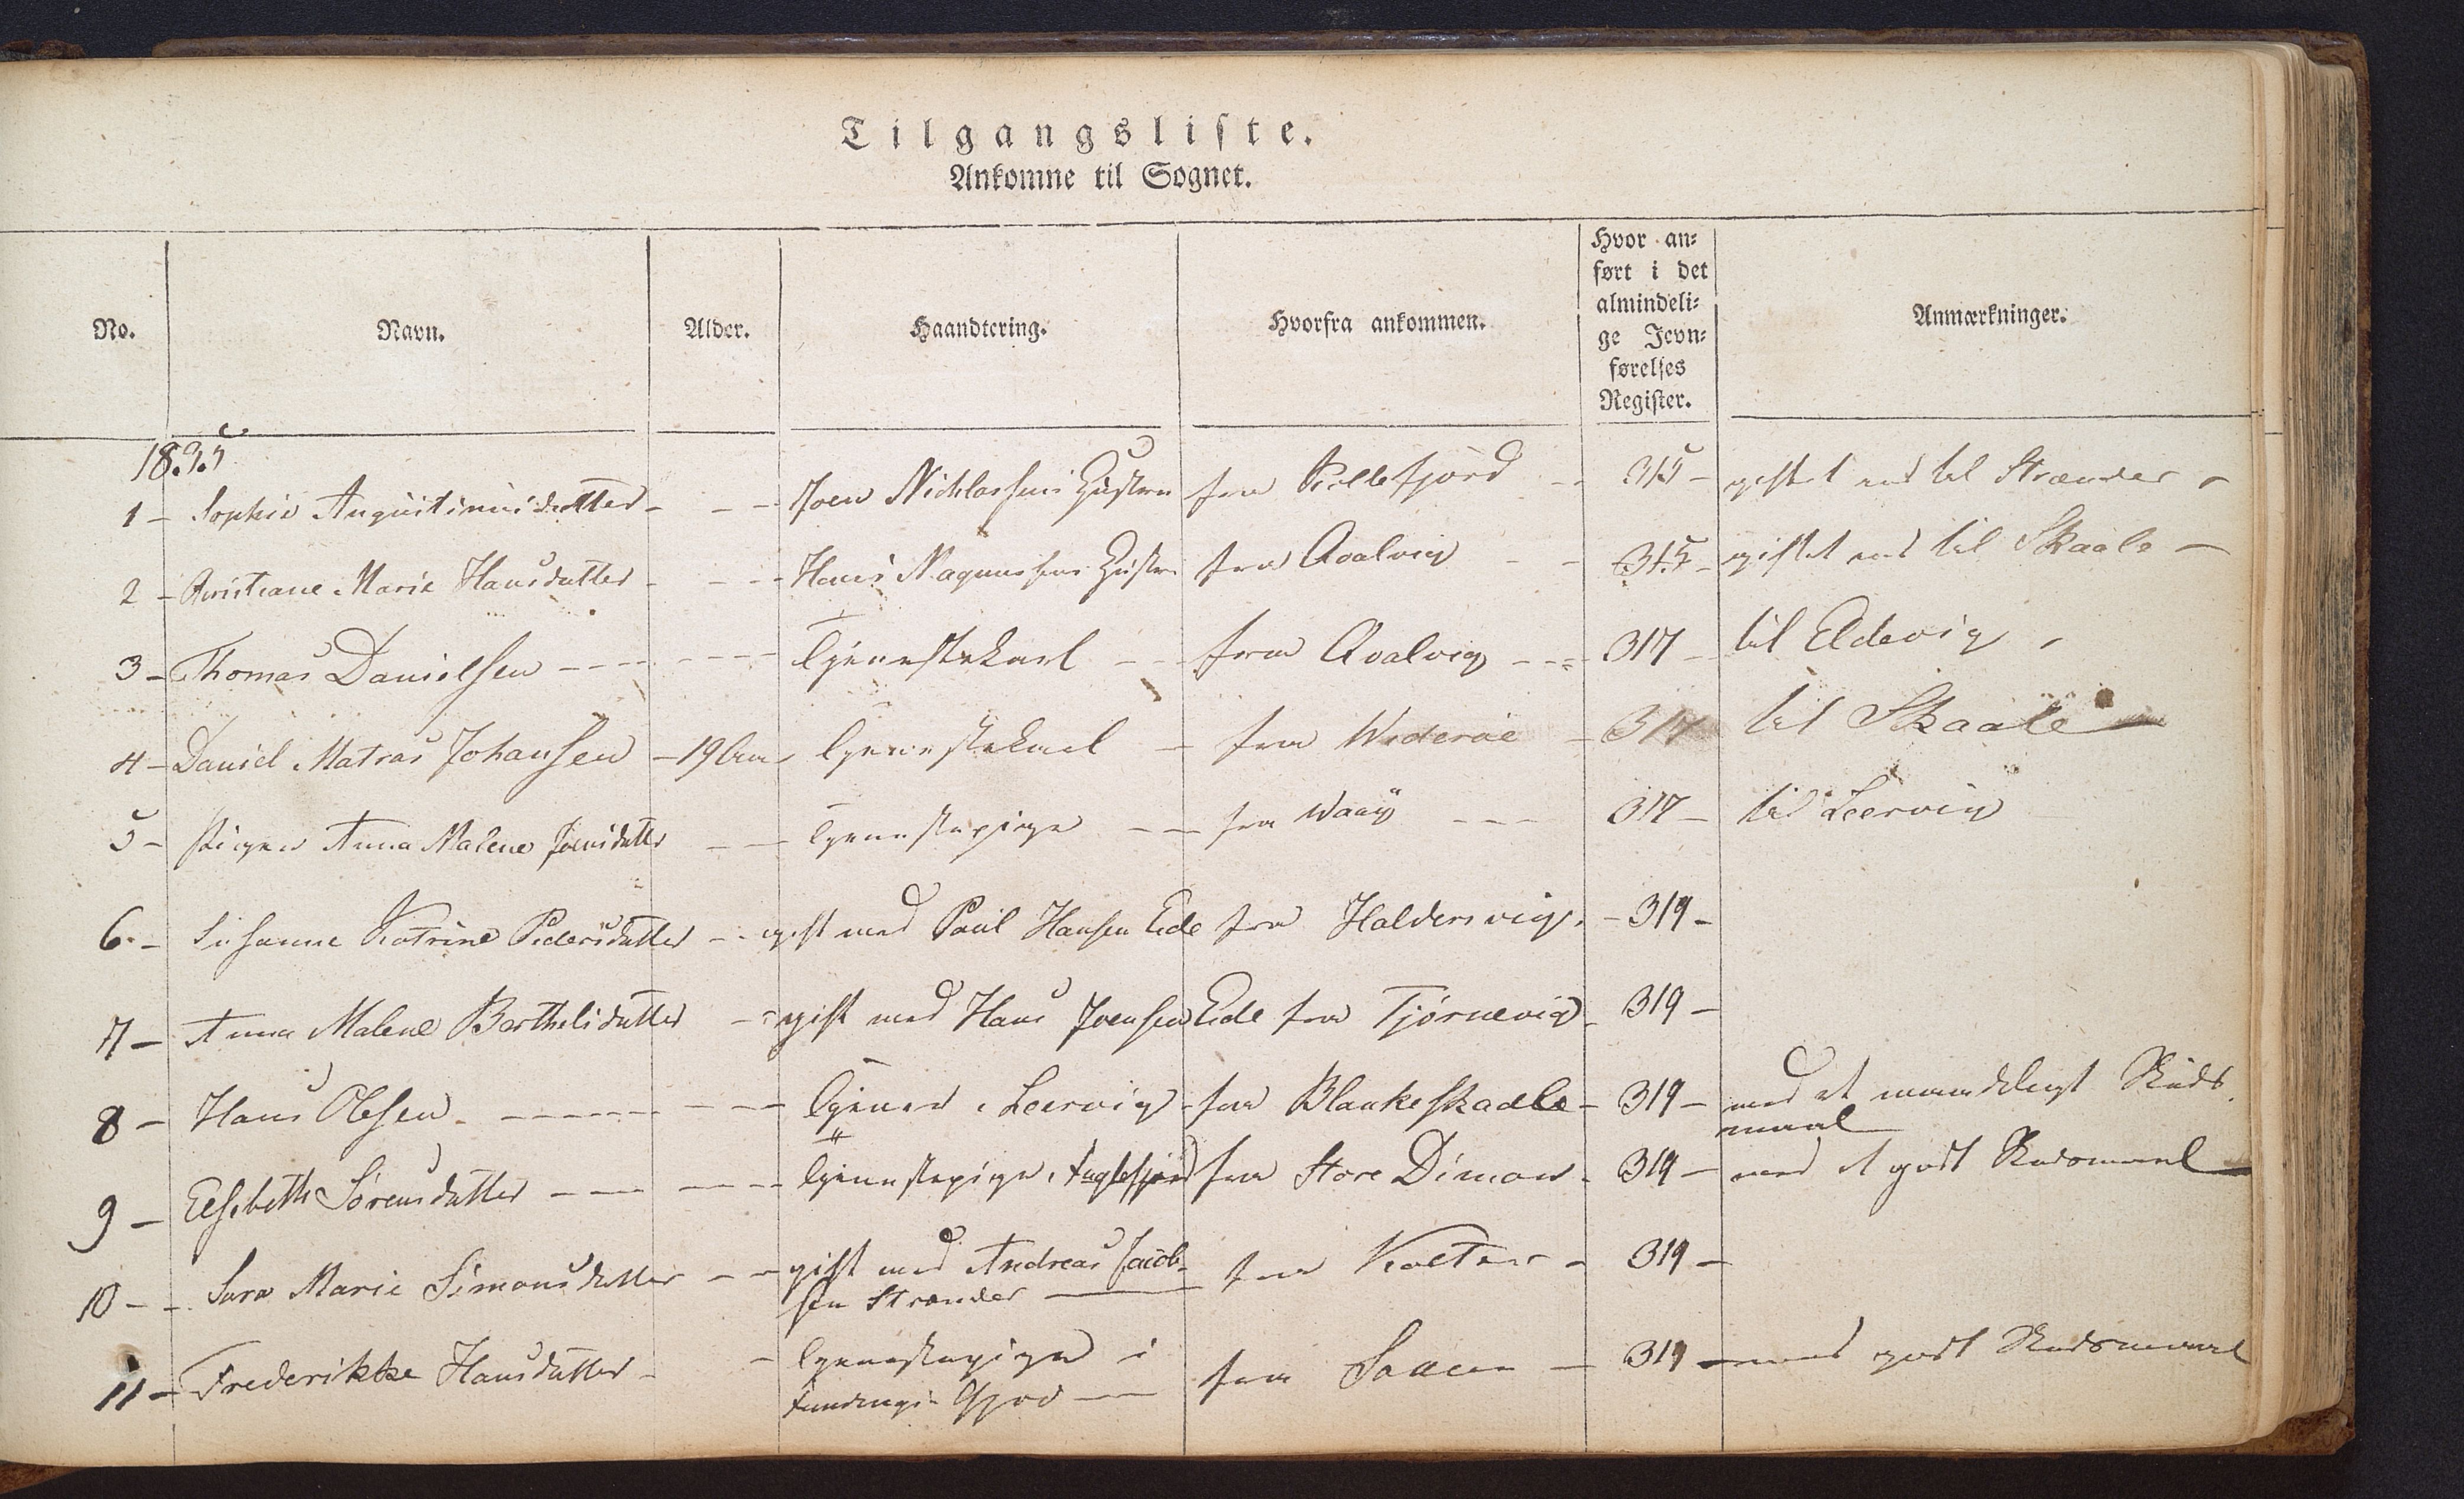 Tilgangsliste.
Ankomne til Sognet.
No. Navn. Alder. Haandtering. Hvorfra ankommen. Hvor an= ført i det almindeli= ge Jevn= førelses Register. Anmærkninger.
1835
1 - Sophie Augustinusdatter - - - Joen Nichlassens Hustru fra Kollefjord - 315 - giftet ind til Strænder -
2 - Christiane Marie Hansdatter - - - Hans Magnussens Hustru fra Qvalvig - - 315 - giftet ind til Skaale -
3 - Thomas Danielsen - - - - Tjenestekarl - - fra Qvalvig - - - 317 - til Eldevig -
4 - Daniel Matras Johansen - 19 Aar Tjenestekarl - fra Viderøe - 317 til Skaale -
5 - Pigen Anna Malene Joensdatter - - Tjenestepige - - fra Waaÿ - - - 317 - til Leervig
6. - Susanne Katrine Pedersdatter - - gift med Paul Hansen Eide fra Haldersvig. - 319 -
7 - Anna Malene Barthelsdatter - - gift med Hans Joensen Eide fra Tjørnevig - 319 -
8 - Hans Olesen - - - - - Tjener i Leervig - fra Blankeskaale - 319 - med et mundtligt Skuds
maal
9 - Elsebeth Sørensdatter - - - - Tjenestepige i Fuglefjord fra Store Dimon - 319 - med et godt Skudsmaal
10 - - Sara Marie Simonsdatter - - gift med Andreas Jacob-
sen Strænder - fra Kolter - 319 -
11 - Frederikke Hansdatter - - Tjenestepige i
Fundings Gjov - fra Saxen - 319 - med godt Skudsmaal